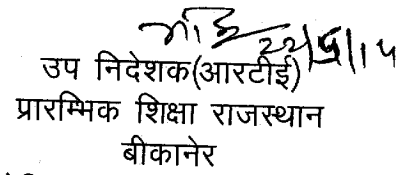 22/5/14
उप निदेशक(आरटीई)
प्रारम्भिक शिक्षा राजस्थान
बीकानेर